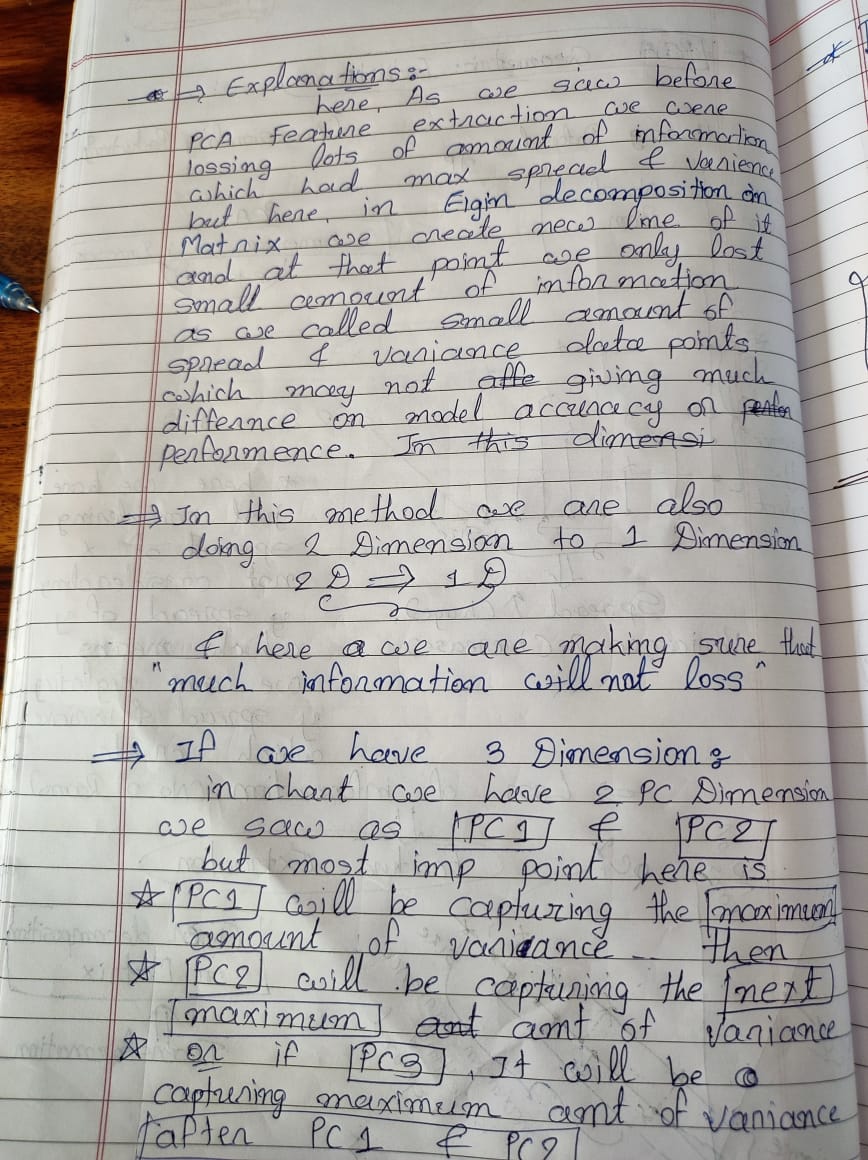 ⇒ Explanations :-
here, As we saw before
PCA Feature extraction we were
lossing lots of amount of information
which had max spread & Varience
but here, in Eigin decomposition on
Matrix we create new line of it
and at that point we only lost
small amount of information
as we called small amount of
spread & variance data points,
which may not affe giving much
differnce on model accuracy or
performence. In this dimensi
⇒ In this method we are also
doing 2 Dimension to 1 Dimension
2 D ⇒ 1 D
& here a we are making sure that
"much information will not loss"
⇒ If we have 3 Dimension :
in chart we have 2 PC Dimension
we saw as PC1 & PC2
but most imp point here is
☆ PC1 will be capturing the maximum
amount of variance - then
☆ PC2 will be capturing the next
maximum amt of variance
☆ or if PC3, It will be
capturing maximum amt of variance
after PC1 & PC2